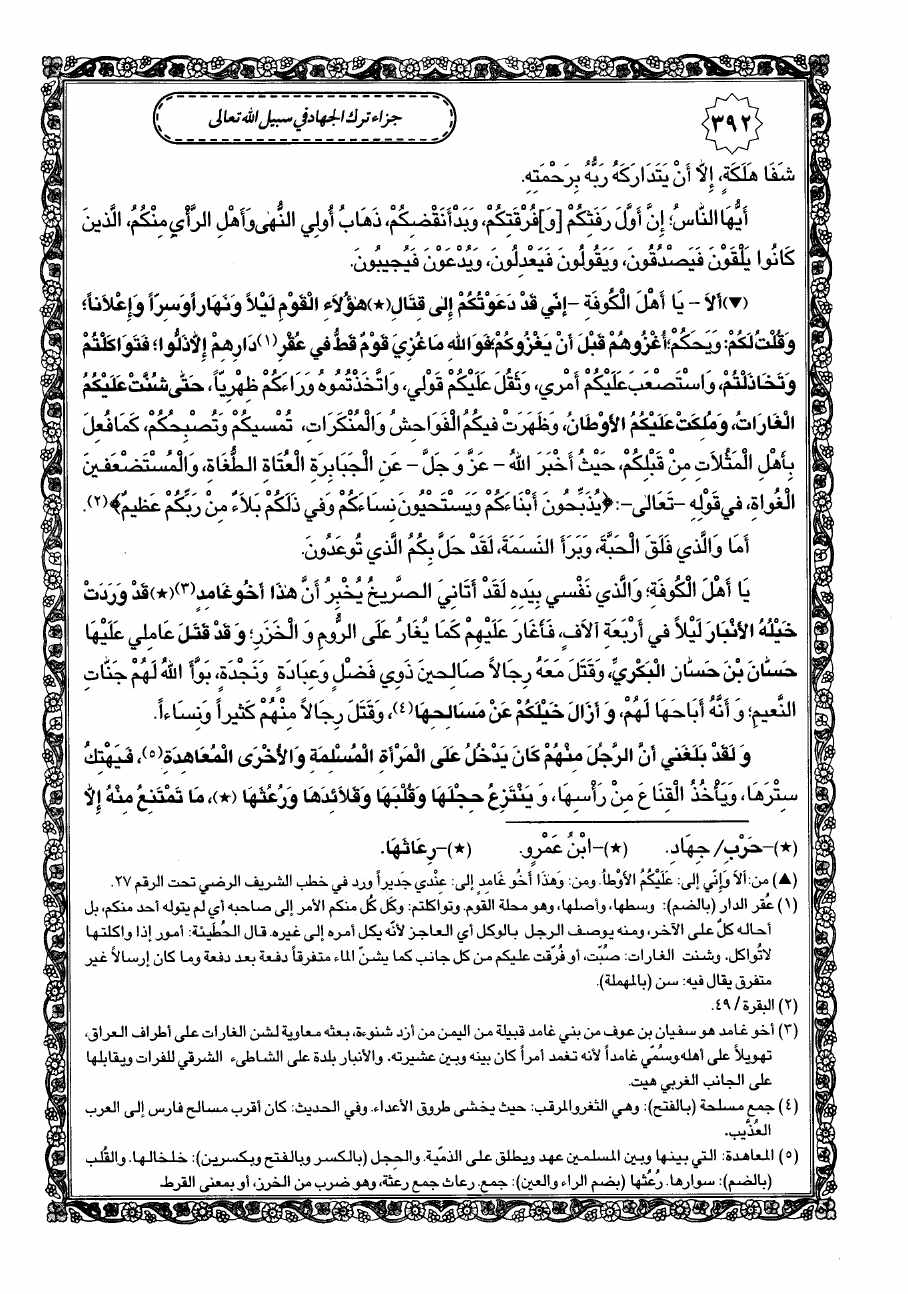 ٣٩٢
جزاء ترك الجهاد في سبيل الله تعالى
شَفَا هَلَكَةٍ، إِلاَّ أَنْ يَتَدَارَكَهُ رَبُّهُ بِرَحْمَتِهِ.
أَيُّهَا النَّاسُ؛ إِنَّ أَوَّلَ رَفَثِكُمْ [وَ]فُرْقَتِكُمْ، وَبَدْأَ نَقْضِكُمْ، ذَهَابُ أُولِي النُّهى وَأَهْلِ الرَّأْيِ مِنْكُمُ، الَّذينَ
كَانُوا يَلْقَوْنَ فَيَصْدُقُونَ، وَيَقُولُونَ فَيَعْدِلُونَ، وَيُدْعَوْنَ فَيُجيبُونَ.
(▼) أَلاَ - يَا أَهْلَ الْكُوفَةِ - إِنّي قَدْ دَعَوْتُكُمْ إِلى قِتَالِ(★) هؤُلاَءِ الْقَوْمِ لَيْلاً وَنَهَاراً وَسِرّاً وَإِعْلاَناً؛
وَقُلْتُ لَكُمْ: وَيَحْكُمْ؛ اُغْزُوهُمْ قَبْلَ أَنْ يَغْزُوكُمْ؛ فَوَاللهِ مَا غُزِيَ قَوْمٌ قَطُّ في عُقْرِ (١) دَارِهِمْ إِلاَّ ذَلُّوا؛ فَتَوَاكَلْتُمْ
وَتَخَاذَلْتُمْ، وَاسْتَصْعَبَ عَلَيْكُمْ أَمْري، وَثَقُلَ عَلَيْكُمْ قَوْلي، وَاتَّخَذْتُمُوهُ وَرَاءَكُمْ ظِهْرِيّاً، حَتّى شُنَّتْ عَلَيْكُمُ
الْغَارَاتُ، وَمُلِكَتْ عَلَيْكُمُ الأَوْطَانُ، وَظَهَرَتْ فيكُمُ الْفَوَاحِشُ وَالْمُنْكَرَاتُ، تُمْسيكُمْ وَتُصْبِحُكُمْ، كَمَا فُعِلَ
بِأَهْلِ الْمَثُلاَتِ مِنْ قَبْلِكُمْ، حَيْثُ أَخْبَرَ اللهُ - عَزَّ وَ جَلَّ - عَنِ الْجَبَابِرَةِ الْعُتَاةِ الطُّغَاةِ، وَالْمُسْتَضْعَفينَ
الْغُوَاةِ، في قَوْلِهِ - تَعَالى -: ﴿يُذَبِّحُونَ أَبْنَاءَكُمْ وَيَسْتَحْيُونَ نِسَاءَكُمْ وَفي ذلِكُمْ بَلاَءٌ مِنْ رَبِّكُمْ عَظيمٌ﴾ (٢).
أَمَا وَالَّذي فَلَقَ الْحَبَّةَ، وَبَرَأَ النَّسَمَةَ، لَقَدْ حَلَّ بِكُمُ الَّذي تُوعَدُونَ.
يَا أَهْلَ الْكُوفَةِ؛ وَالَّذي نَفْسي بِيَدِهِ لَقَدْ أَتَانِيَ الصَّريخُ يُخْبِرُ أَنَّ هذَا أَخُو غَامِدٍ (٣)(★) قَدْ وَرَدَتْ
خَيْلُهُ الأَنْبَارَ لَيْلاً في أَرْبَعَةِ آلاَفٍ، فَأَغَارَ عَلَيْهِمْ كَمَا يُغَارُ عَلَى الرُّومِ وَ الْخَزَرِ؛ وَ قَدْ قَتَلَ عَامِلي عَلَيْهَا
حَسَّانَ بْنَ حَسَّانِ الْبَكْرِيَّ، وَقَتَلَ مَعَهُ رِجَالاً صَالِحينَ ذَوي فَضْلٍ وَعِبَادَةٍ وَنَجْدَةٍ، بَوَّأَ اللهُ لَهُمْ جَنَّاتِ
النَّعيمِ؛ وَ أَنَّهُ أَبَاحَهَا لَهُمْ، وَ أَزَالَ خَيْلَكُمْ عَنْ مَسَالِحِهَا (٤)، وَقَتَلَ رِجَالاً مِنْهُمْ كَثيراً وَنِسَاءاً.
وَ لَقَدْ بَلَغَني أَنَّ الرَّجُلَ مِنْهُمْ كَانَ يَدْخُلُ عَلَى الْمَرْأَةِ الْمُسْلِمَةِ وَالأُخْرَى الْمُعَاهِدَةِ (٥)، فَيَهْتِكُ
سِتْرَهَا، وَيَأْخُذُ الْقِنَاعَ مِنْ رَأْسِهَا، وَ يَنْتَزِعُ حِجْلَهَا وَقُلْبَهَا وَقَلاَئِدَهَا وَرُعُثَهَا (★)، مَا تَمْتَنِعُ مِنْهُ إِلاَّ
(★)- حَرْبِ / جِهَادِ. (★)- ابْنُ عَمْرٍو. (★)- رِعَاثَهَا.
(▲) من: أَلاَ وَإِنّي إلى: عَلَيْكُمُ الأَوْطاَ. ومن: وَهذَا أَخُو غَامِدٍ إلى: عِنْدي جَديراً ورد في خطب الشريف الرضي تحت الرقم ٢٧.
(١) عُقر الدار (بالضم): وسطها، وأصلها، وهو محلة القوم. وتواكلتم: وكَل كُل منكم الأمر إلى صاحبه أي لم يتوله أحد منكم، بل
أحاله كلٌ على الآخر، ومنه يوصف الرجل بالوكل أي العاجز لأنّه يكل أمره إلى غيره. قال الحُطَيئة: أمور إذا واكلتها
لاتُواكل. وشنت الغارات: صبّت، أو فُرّقت عليكم من كل جانب كما يشنّ الماء متفرقاً دفعة بعد دفعة وما كان إرسالاً غير
متفرق يقال فيه: سن (بالمهملة).
(٢) البقرة / ٤٩.
(٣) أخو غامد هو سفيان بن عوف من بني غامد قبيلة من اليمن من أزد شنوءة، بعثه معاوية لشن الغارات على أطراف العراق،
تهويلاً على أهله وسُمّي غامداً لأنه تغمد أمراً كان بينه وبين عشيرته. والأنبار بلدة على الشاطىء الشرقي للفرات ويقابلها
على الجانب الغربي هيت.
(٤) جمع مسلحة (بالفتح): وهي الثغر والمرقب: حيث يخشى طروق الأعداء. وفي الحديث: كان أقرب مسالح فارس إلى العرب
العُذَيب.
(٥) المعاهدة: التي بينها وبين المسلمين عهد ويطلق على الذمّية. والحِجل (بالكسر وبالفتح وبكسرين): خلخالها. والقُلب
(بالضم): سوارها. رُعُثها (بضم الراء والعين): جمع. رعاث جمع رعثة، وهو ضرب من الخرز، أو بمعنى القرط.